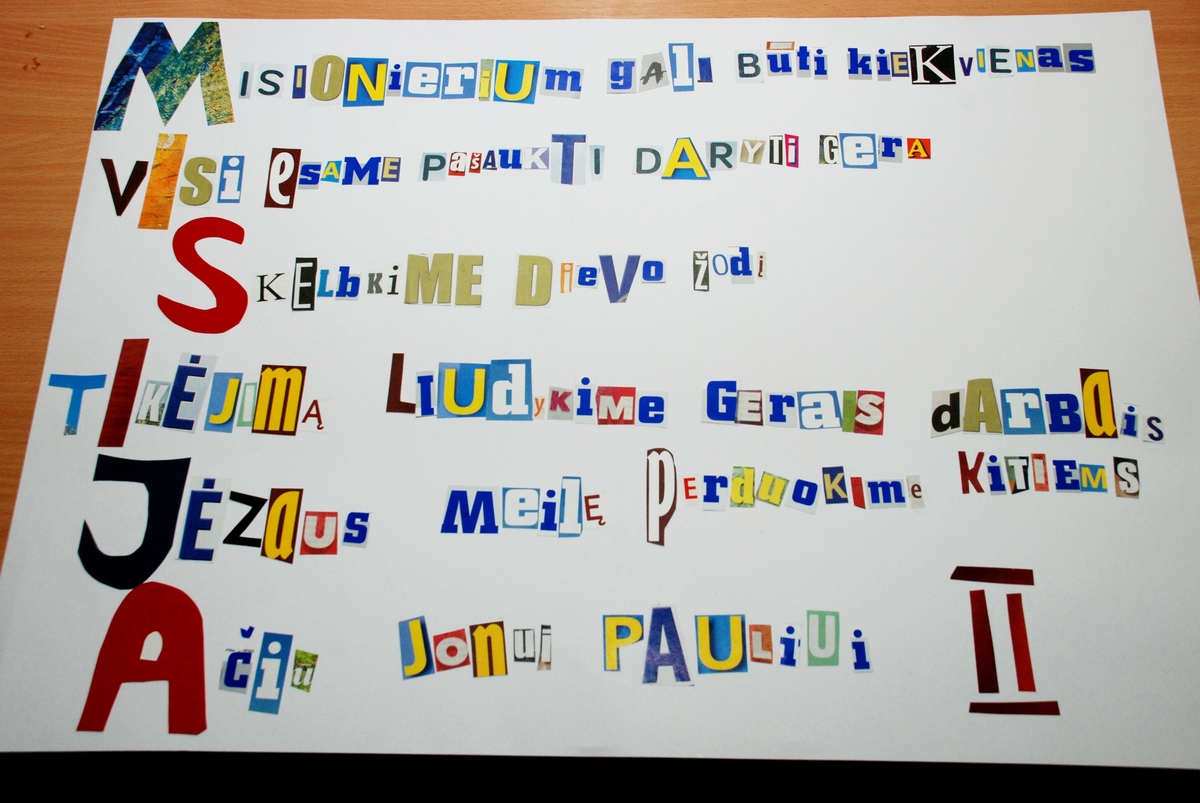 MISIONieriUm gAlI Būti kiEKVIENas
VISi esAME PašAukTI DARYTi GerA
SKELbkiME DieVo Žodį
TIKĖJIMĄ LIUdykiME GerAiS dArBAiS
JĖZAUS MeilĘ PerduoKime KiTIEMS
Ačiū JonUi PAULiUi II